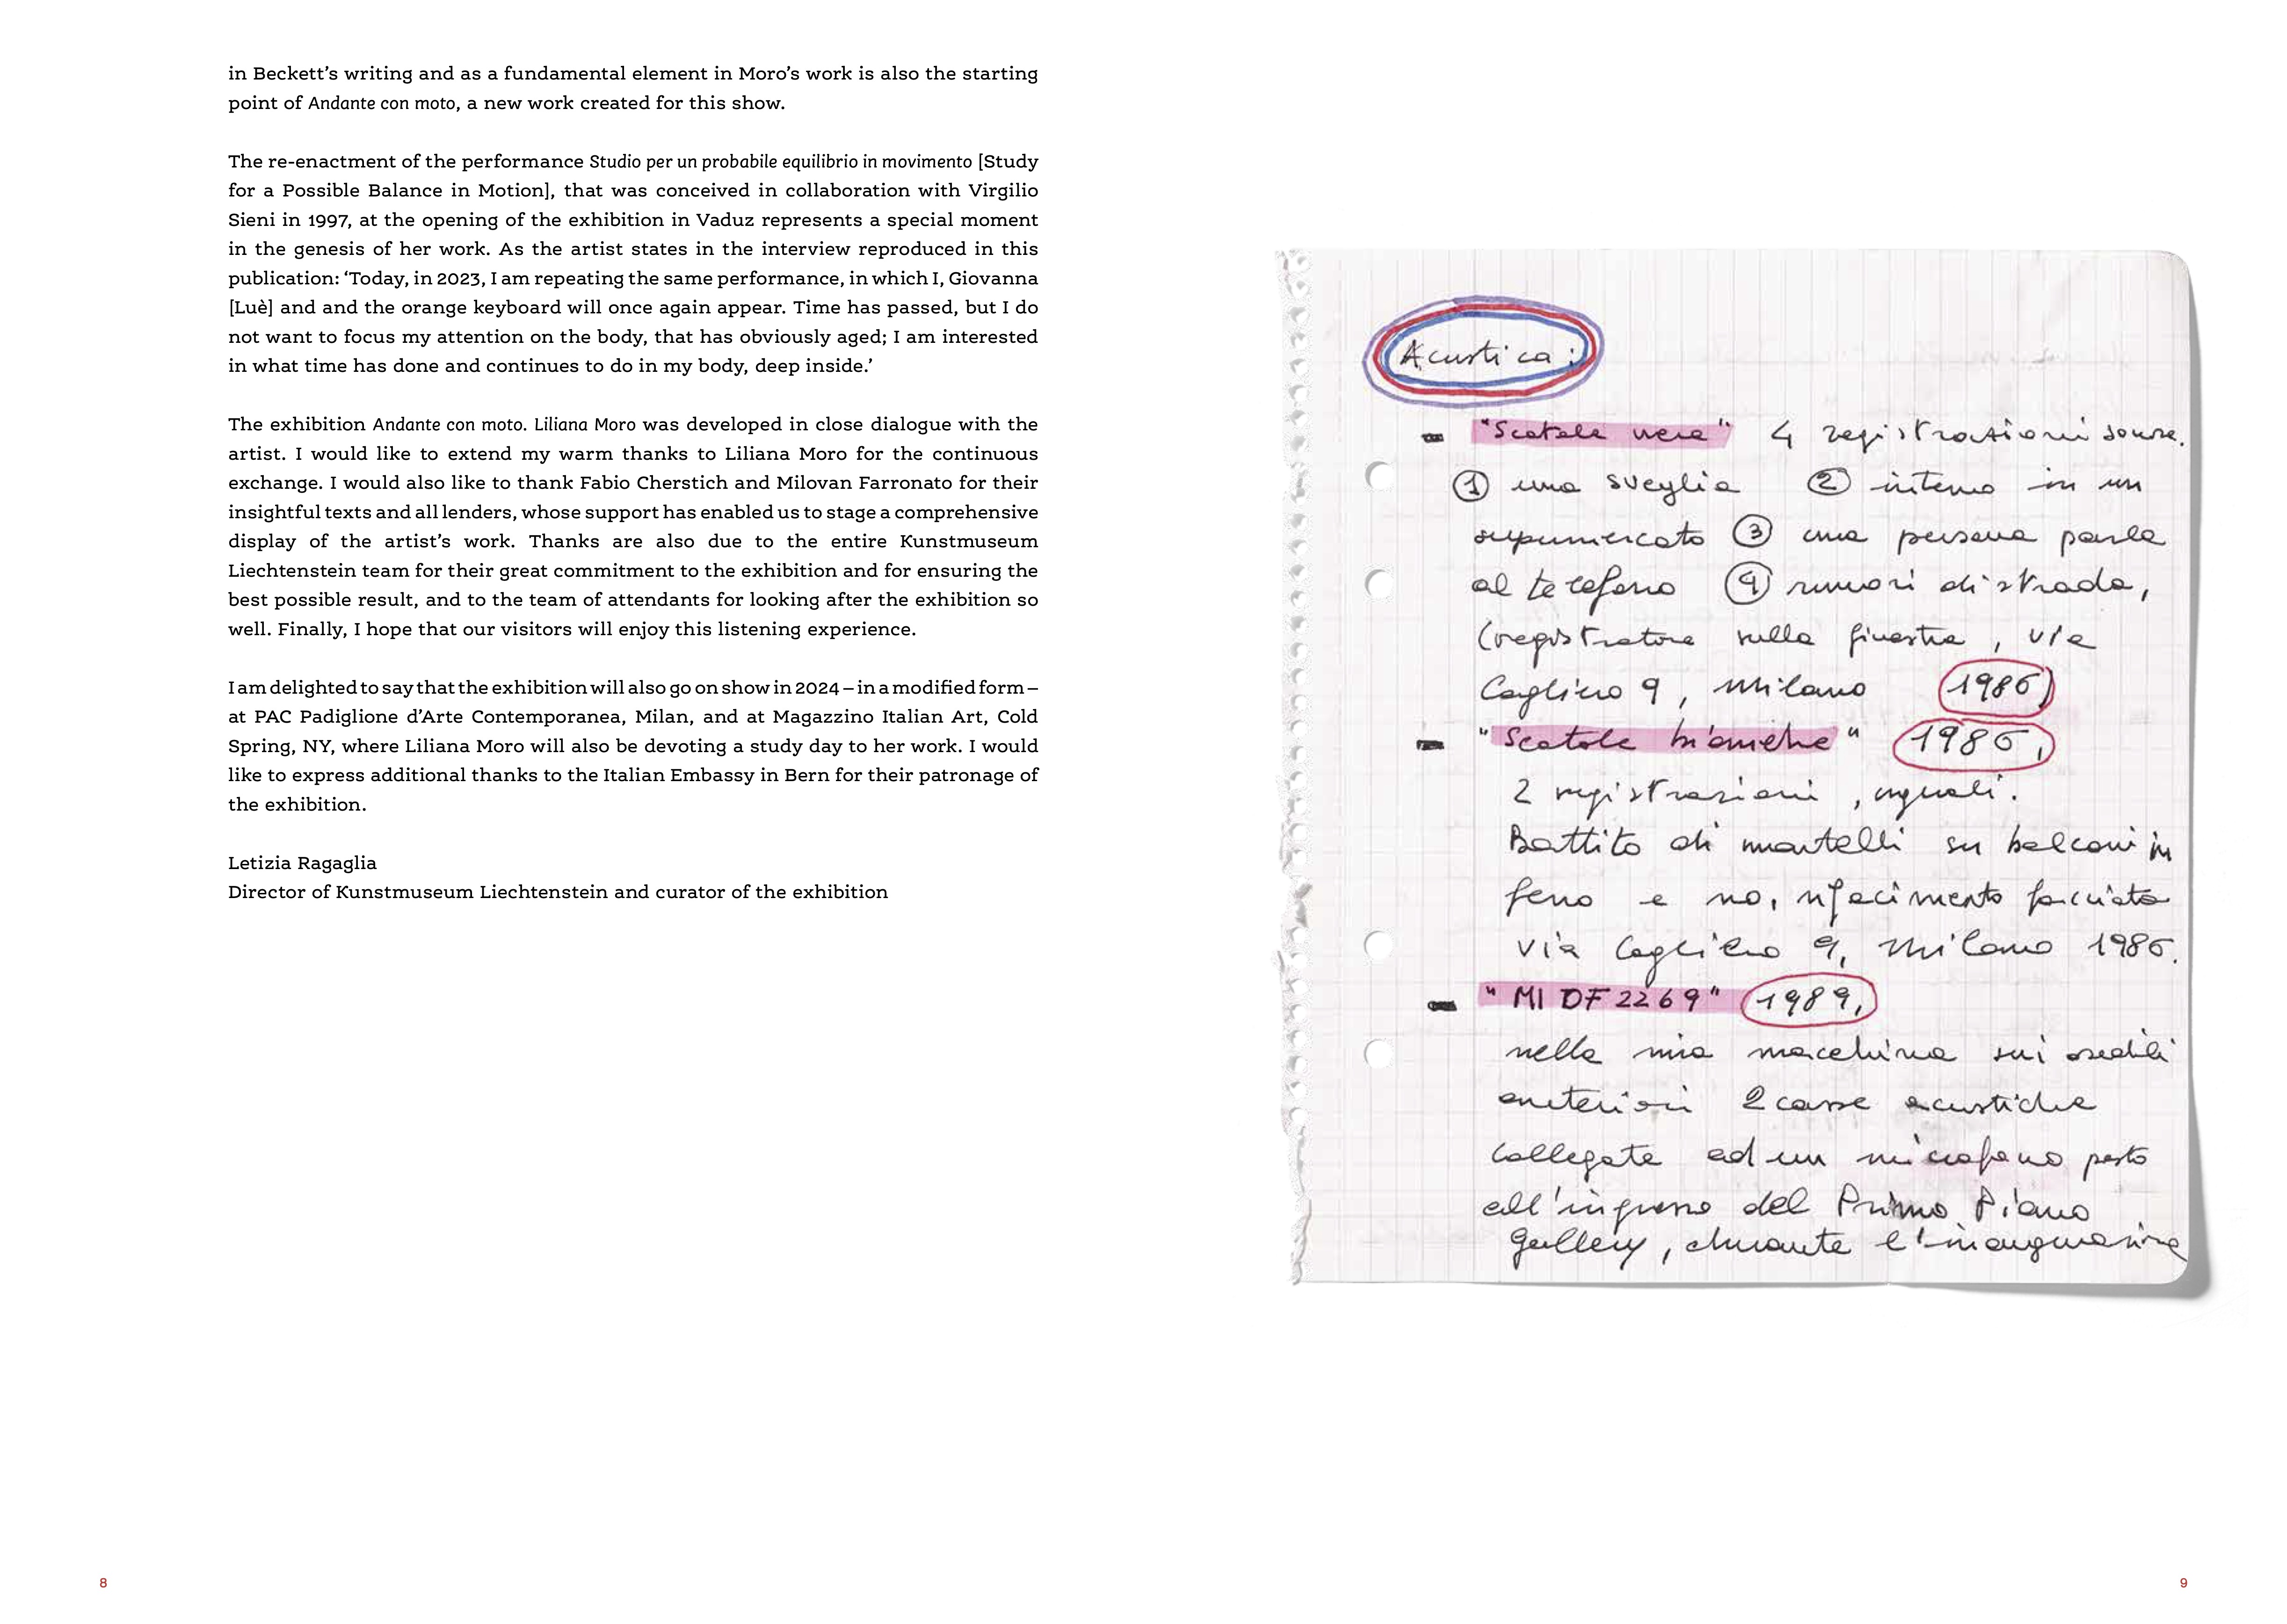 in Beckett’s writing and as a fundamental element in Moro’s work is also the starting
point of Andante con moto, a new work created for this show.
The re-enactment of the performance Studio per un probabile equilibrio in movimento [Study
for a Possible Balance in Motion], that was conceived in collaboration with Virgilio
Sieni in 1997, at the opening of the exhibition in Vaduz represents a special moment
in the genesis of her work. As the artist states in the interview reproduced in this
publication: ‘Today, in 2023, I am repeating the same performance, in which I, Giovanna
[Luè] and and the orange keyboard will once again appear. Time has passed, but I do
not want to focus my attention on the body, that has obviously aged; I am interested
in what time has done and continues to do in my body, deep inside.’
The exhibition Andante con moto. Liliana Moro was developed in close dialogue with the
artist. I would like to extend my warm thanks to Liliana Moro for the continuous
exchange. I would also like to thank Fabio Cherstich and Milovan Farronato for their
insightful texts and all lenders, whose support has enabled us to stage a comprehensive
display of the artist’s work. Thanks are also due to the entire Kunstmuseum
Liechtenstein team for their great commitment to the exhibition and for ensuring the
best possible result, and to the team of attendants for looking after the exhibition so
well. Finally, I hope that our visitors will enjoy this listening experience.
I am delighted to say that the exhibition will also go on show in 2024 – in a modified form –
at PAC Padiglione d’Arte Contemporanea, Milan, and at Magazzino Italian Art, Cold
Spring, NY, where Liliana Moro will also be devoting a study day to her work. I would
like to express additional thanks to the Italian Embassy in Bern for their patronage of
the exhibition.
Letizia Ragaglia
Director of Kunstmuseum Liechtenstein and curator of the exhibition
8
Acustica:
- "Scatole nere" 4 registrazioni sonore.
① una sveglia ② interno in un
supermercato ③ una persona parla
al telefono ④ rumori di strada,
(registratore sulla finestra, via
Cagliero 9, Milano 1986)
- "Scatole bianche" 1986,
2 registrazioni, uguali.
Battito di martelli su balconi in
ferro e no, rifacimento facciata
via Cagliero 9, Milano 1986.
- "MI DF 2269" 1989,
nella mia macchina sui sedili
anteriori 2 casse acustiche
collegate ad un microfono posto
all'ingresso del Primo Piano
Gallery, durante l'inaugurazione
9